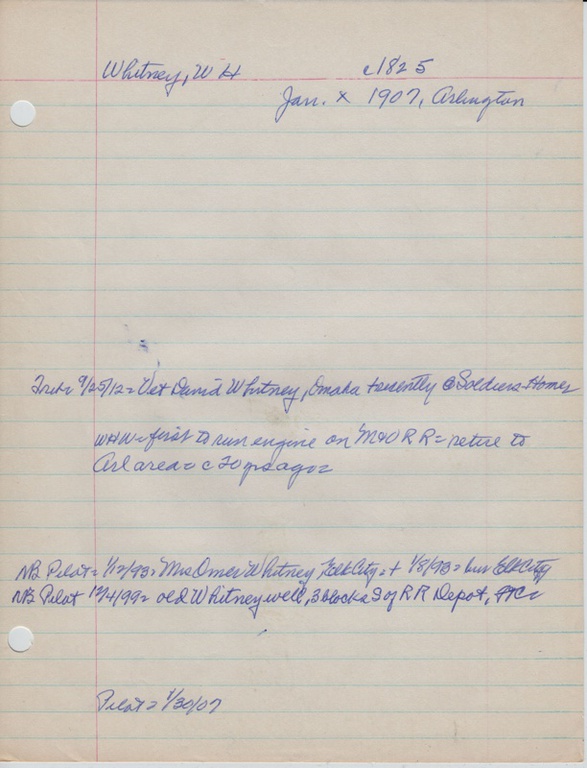 Whitney, W H c1825
Jan. x 1907, Arlington
9/25/12 = Vet David Whitney, Omaha + recently @ Soldiers Home
WHW = first to run engine on M&O R R = retire to
Arl area = c 20 yrs ago =
NB Pilot = 1/12/93 = Mrs Omer Whitney, Elk City = + 1/8/93 = bur Elk City
NB Pilot 12/4/99 = old Whitney well, 3 blocks S of R R Depot,
Pilot = 1/30/07